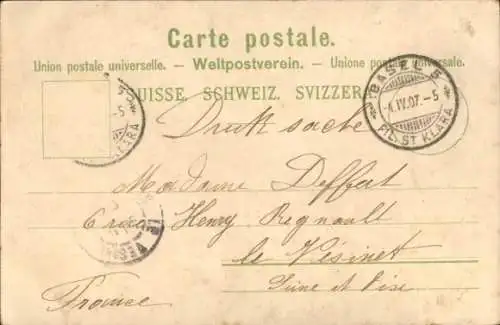 Carte postale.
Union postale universelle. — Weltpostverein. — Unione postale universale.
SUISSE. SCHWEIZ. SVIZZERA
BASEL 5
-4.IV.07.-5
FIL. ST. KLARA
Drucksache
Madame Deffert
6 rue Henry Regnault
le Vésinet
Seine et Oise
France